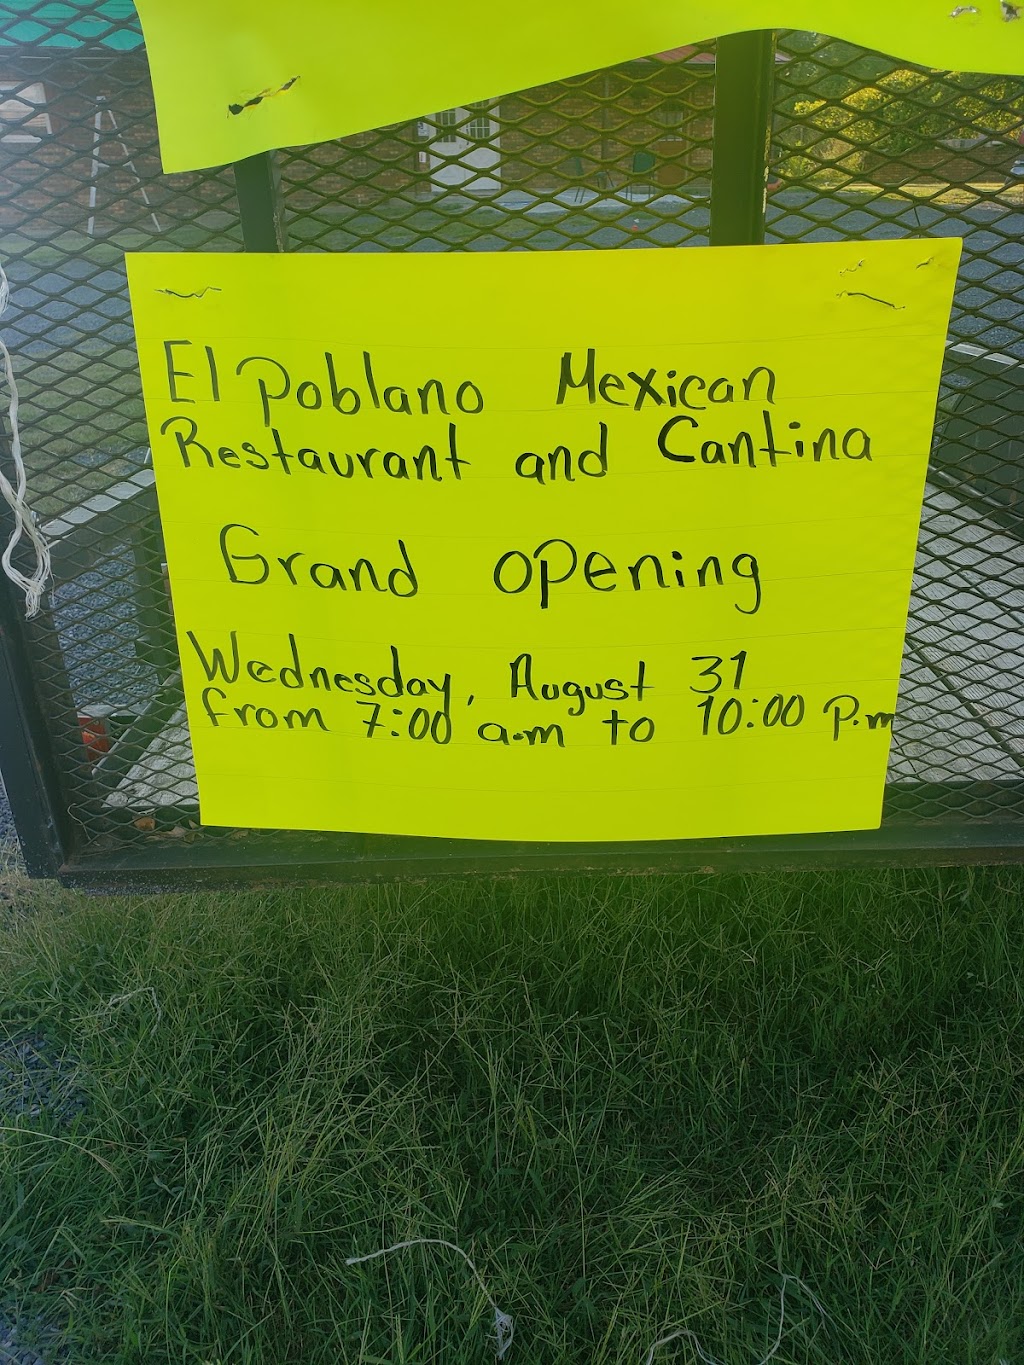 El poblano Mexican
Restaurant and Cantina
Grand opening
Wednesday, August 31
from 7:00 a.m to 10:00 P.m